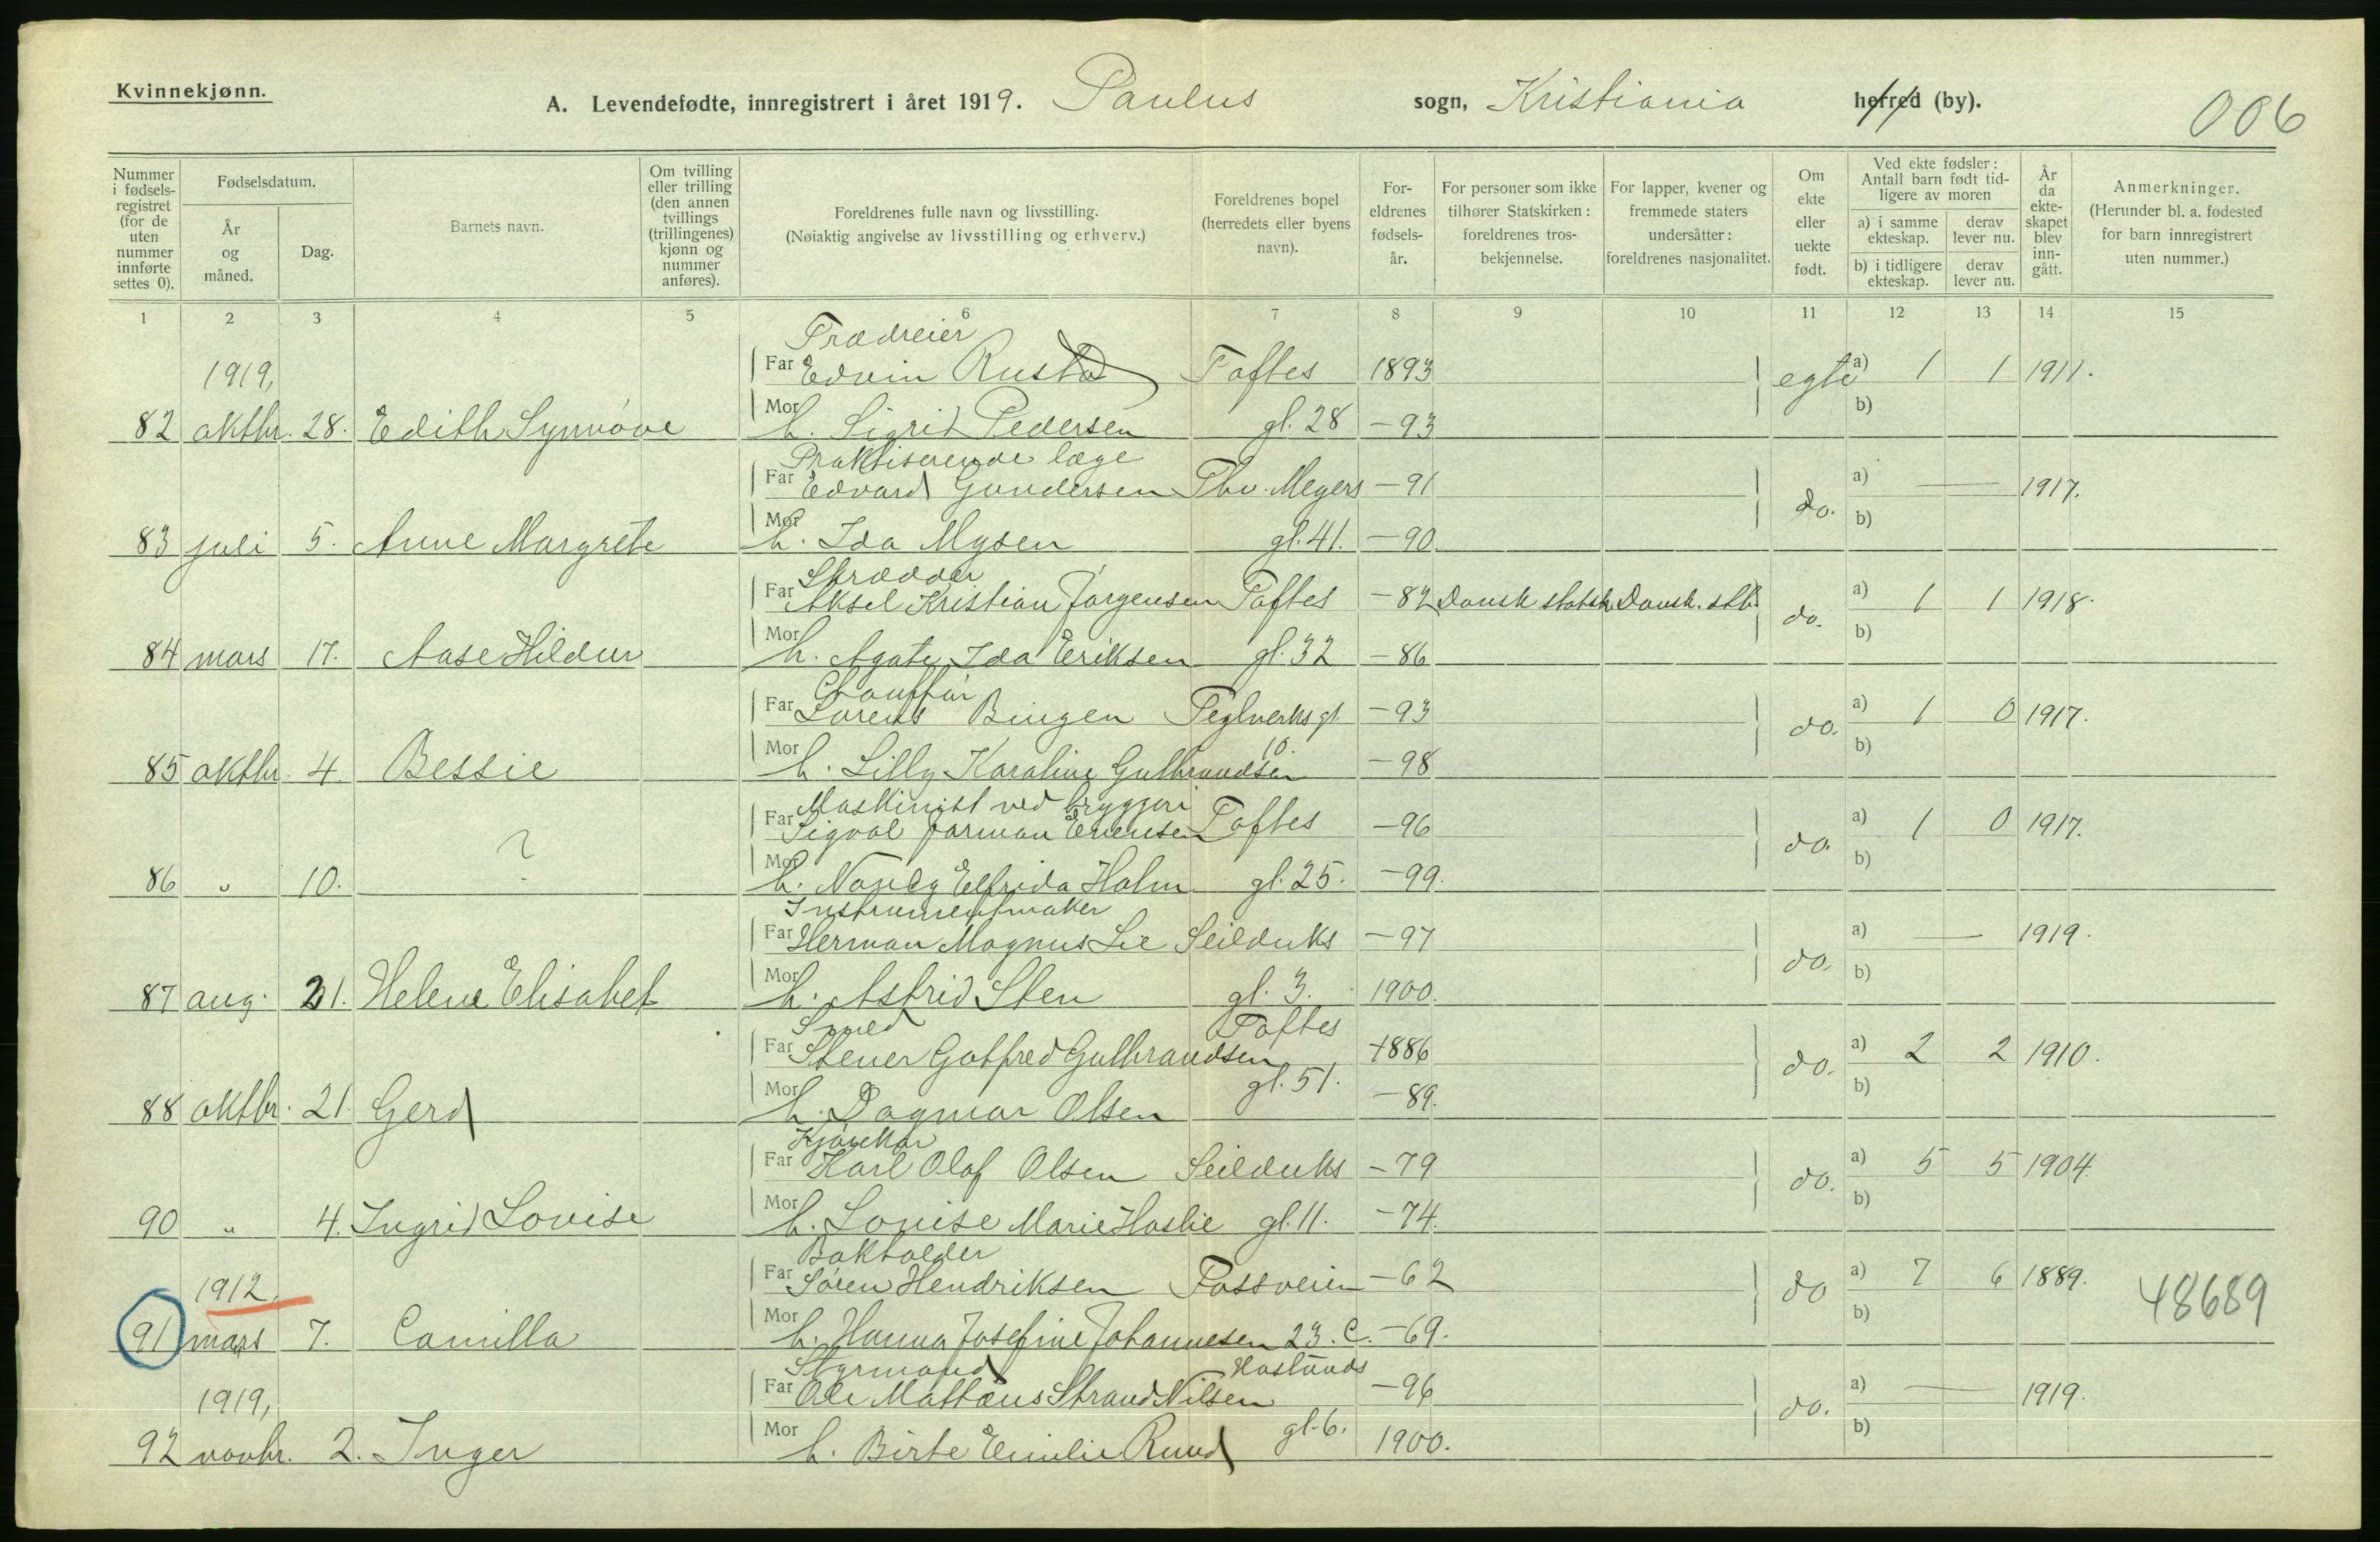 Kvinnekjønn.
A. Levendefødte, innregistrert i året 1919. Paulus sogn, Kristiania herred (by).
006
Nummer i fødsels-registret (for de uten nummer innførte settes 0).
Fødselsdatum.
År og måned.
Dag.
Barnets navn.
Om tvilling eller trilling (den annen tvillings (trillingenes) kjønn og nummer anføres).
Foreldrenes fulle navn og livsstilling.
(Nøiaktig angivelse av livsstilling og erhverv.)
Foreldrenes bopel (herredets eller byens navn).
For-eldrenes fødsels-år.
For personer som ikke tilhører Statskirken: foreldrenes tros-bekjennelse.
For lapper, kvener og fremmede staters undersåtter: foreldrenes nasjonalitet.
Om ekte eller uekte født.
Ved ekte fødsler: Antall barn født tid-ligere av moren
a) i samme ekteskap.
derav lever nu.
b) i tidligere ekteskap.
derav lever nu.
År da ekte-skapet blev inn-gått.
Anmerkninger.
(Herunder bl. a. fødested for barn innregistrert uten nummer.)
1 2 3 4 5 6 7 8 9 10 11 12 13 14 15
Trædreier
1919, Far Edvin Rustad Toftes 1893 egte a) 1 1 1911.
82 oktbr. 28. Edith Synnöve Mor h. Sigrid Pedersen gt. 28 -93 b)
Praktiserende læge
Far Edvard Gundersen Thv. Meyers -91 do. a) — 1917.
83 juli 5. Anne Margrete Mor h. Ida Mysen gt. 41. -90 b)
Skrædder
Far Aksel Kristian Jörgensen Toftes -82 Dansk statsk. Dansk. stb. do. a) 1 1 1918.
84 mars 17. Aase Hildur Mor h. Agate Ida Eriksen gt. 32 -86 b)
Chauffür
Far Lorents Bingen Teglverks gt. -93 do. a) 1 0 1917.
10.
85 oktbr. 4. Bessie Mor h. Lilly Karoline Gulbrandsen -98 b)
Maskinist ved bryggeri
Far Sigval Jarman Evensen Toftes -96 do. a) 1 0 1917.
86 " 10. ? Mor h. Nancy Elfrida Holm gt. 25. -99. b)
Instrumentmaker
Far Herman Magnus Lie Seilduks -97 do. a) — 1919.
87 aug. 21. Helene Elisabet Mor h. Astrid Sten gt. 3. 1900. b)
Smed Toftes
Far Stener Gotfred Gulbrandsen 1886 do. a) 2 2 1910.
88 oktbr. 21. Gerd Mor h. Dagmar Olsen gt. 51. -89. b)
Kjörekar
Far Karl Olaf Olsen Seilduks -79 do. a) 5 5 1904.
90 " 4. Ingrid Lovise Mor h. Lovise Marie Haslie gt. 11. -74. b)
Bokholder
1912, Far Sören Hendriksen Fossveien -62 do a) 7 6 1889. 48689
91 mars 7. Camilla Mor h. Hanna Josefine Johannesen 23. C. -69. b)
Styrmand
1919, Far Ole Mattæus Strand Nilsen -96 do. a) — 1919.
92 novbr. 2. Inger Mor h. Birte Emilie Ruud gt. 6. 1900. b)